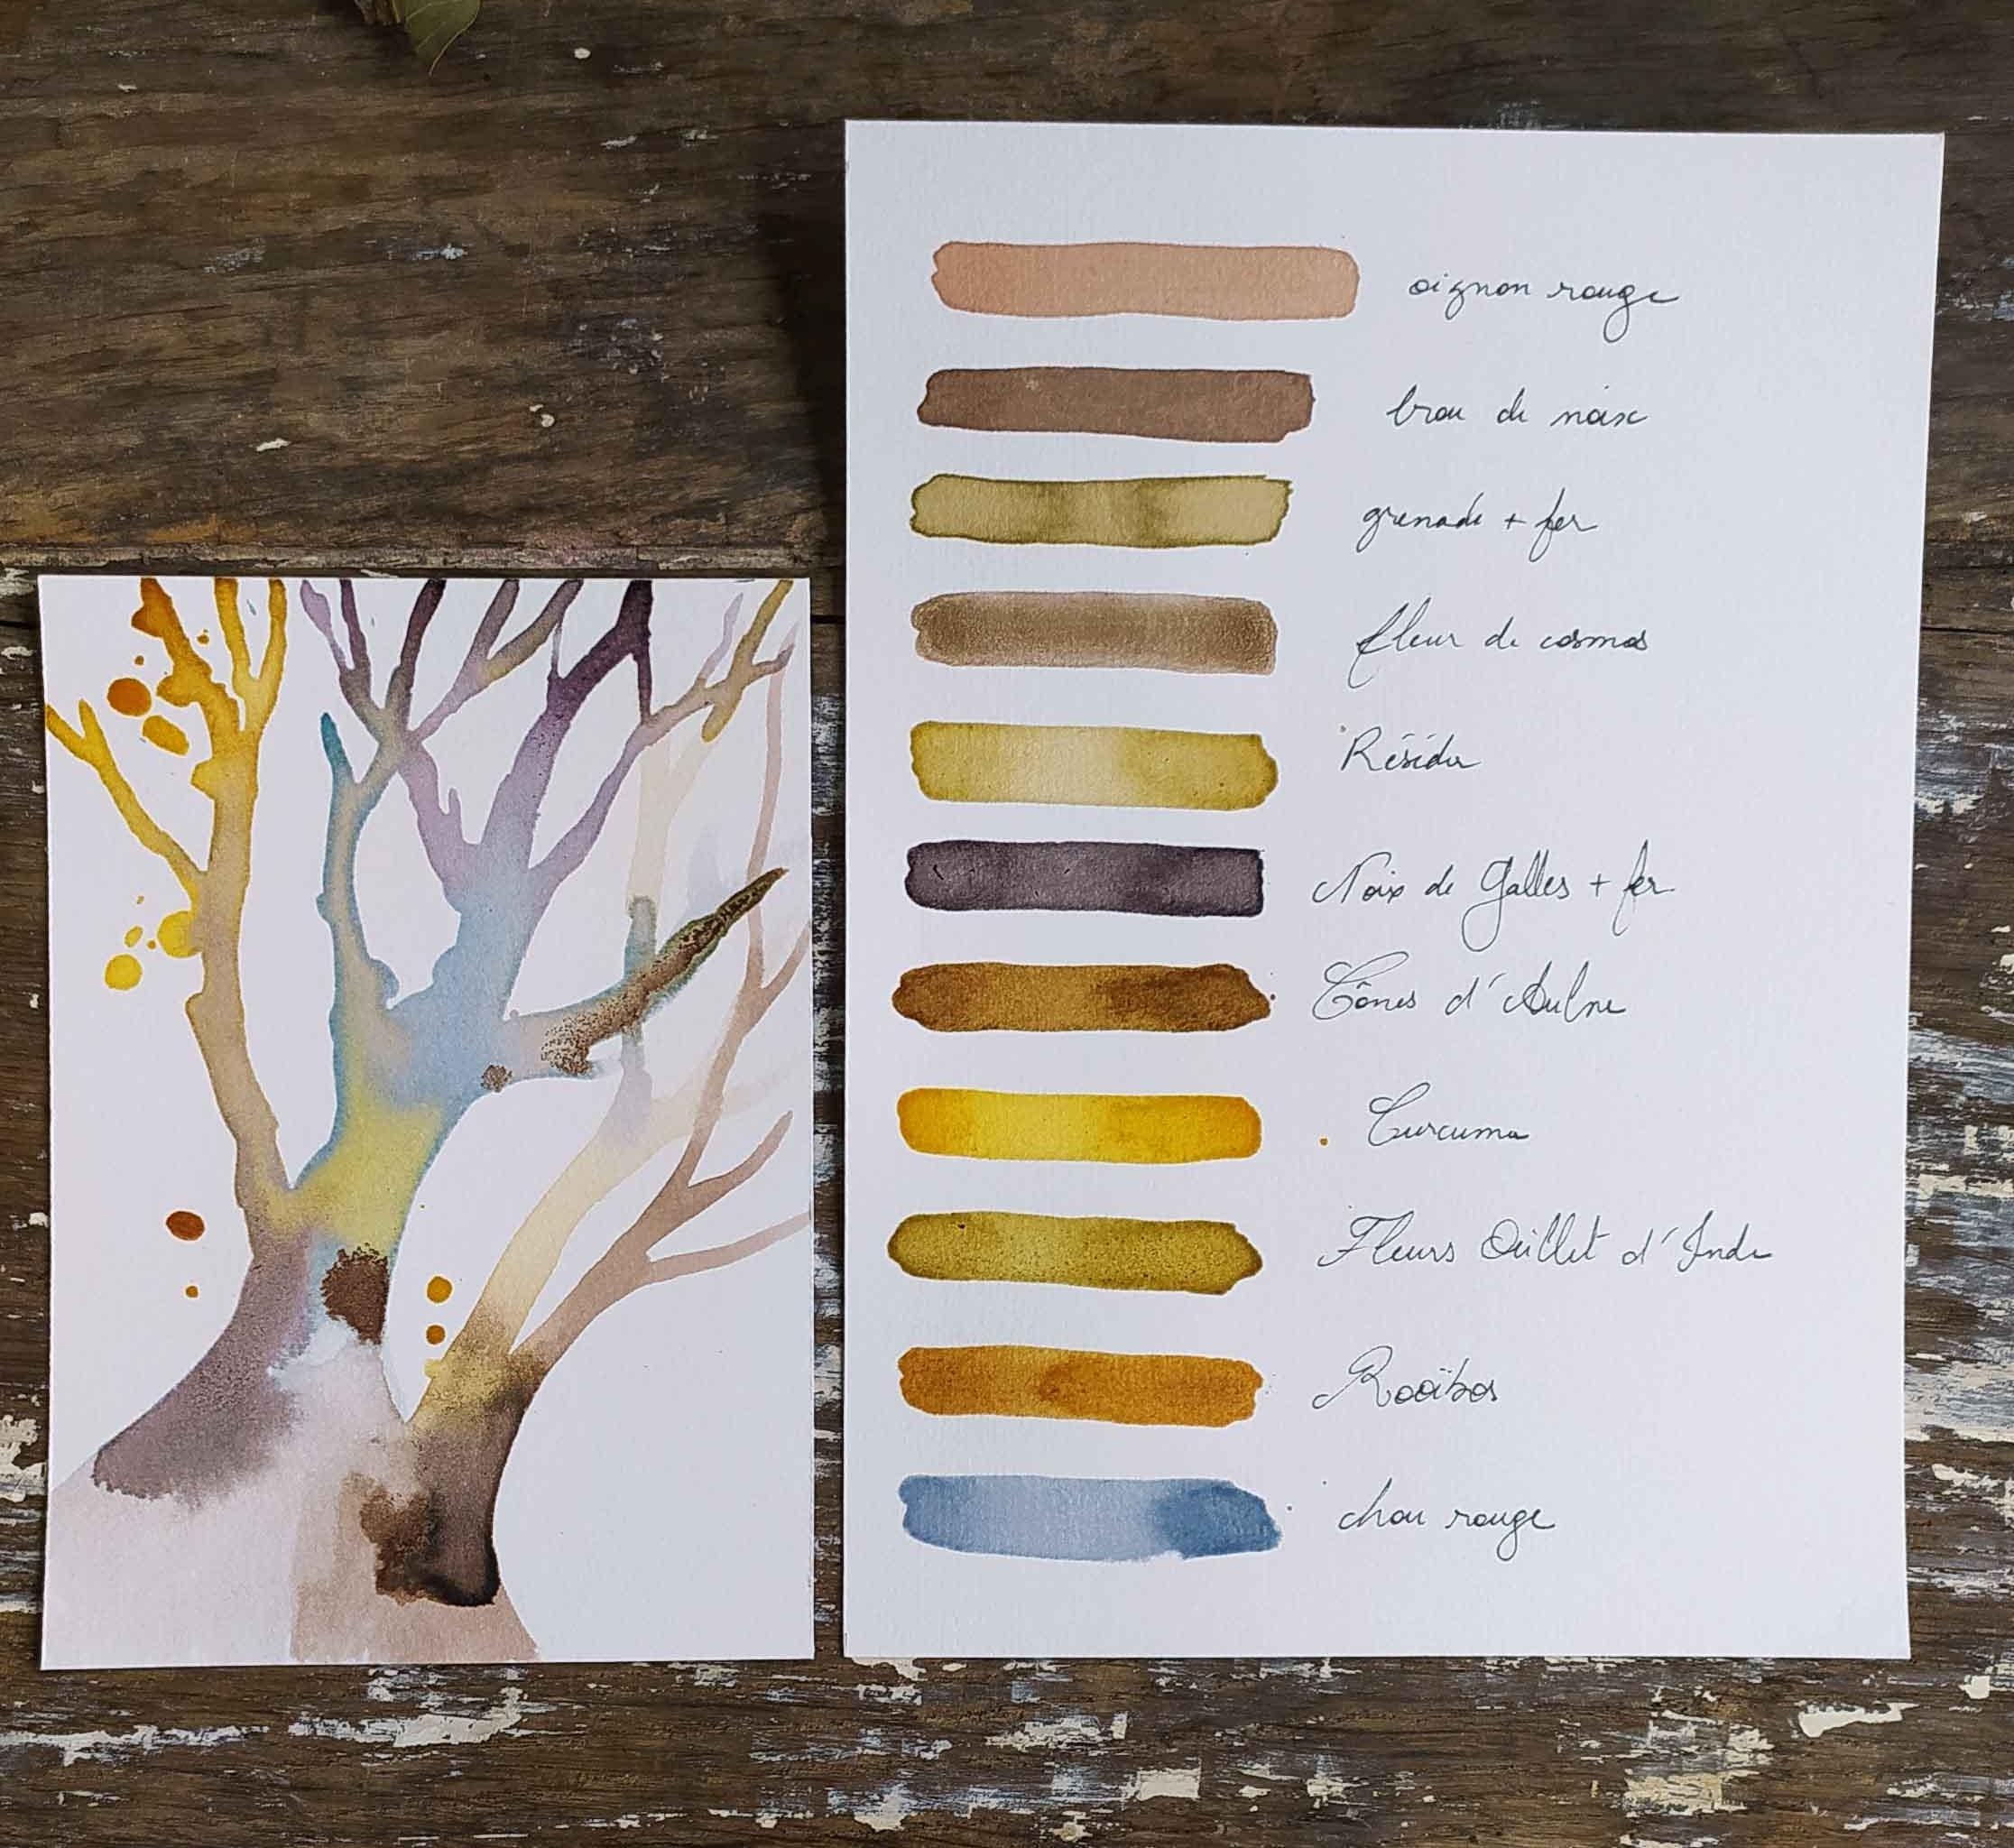 oignon rouge
brou de noix
grenade + fer
fleur de cosmos
Résidu
Noix de Galles + fer
Cônes d'Aulne
Curcuma
Fleurs Œillet d'Inde
Rooïbos
chou rouge